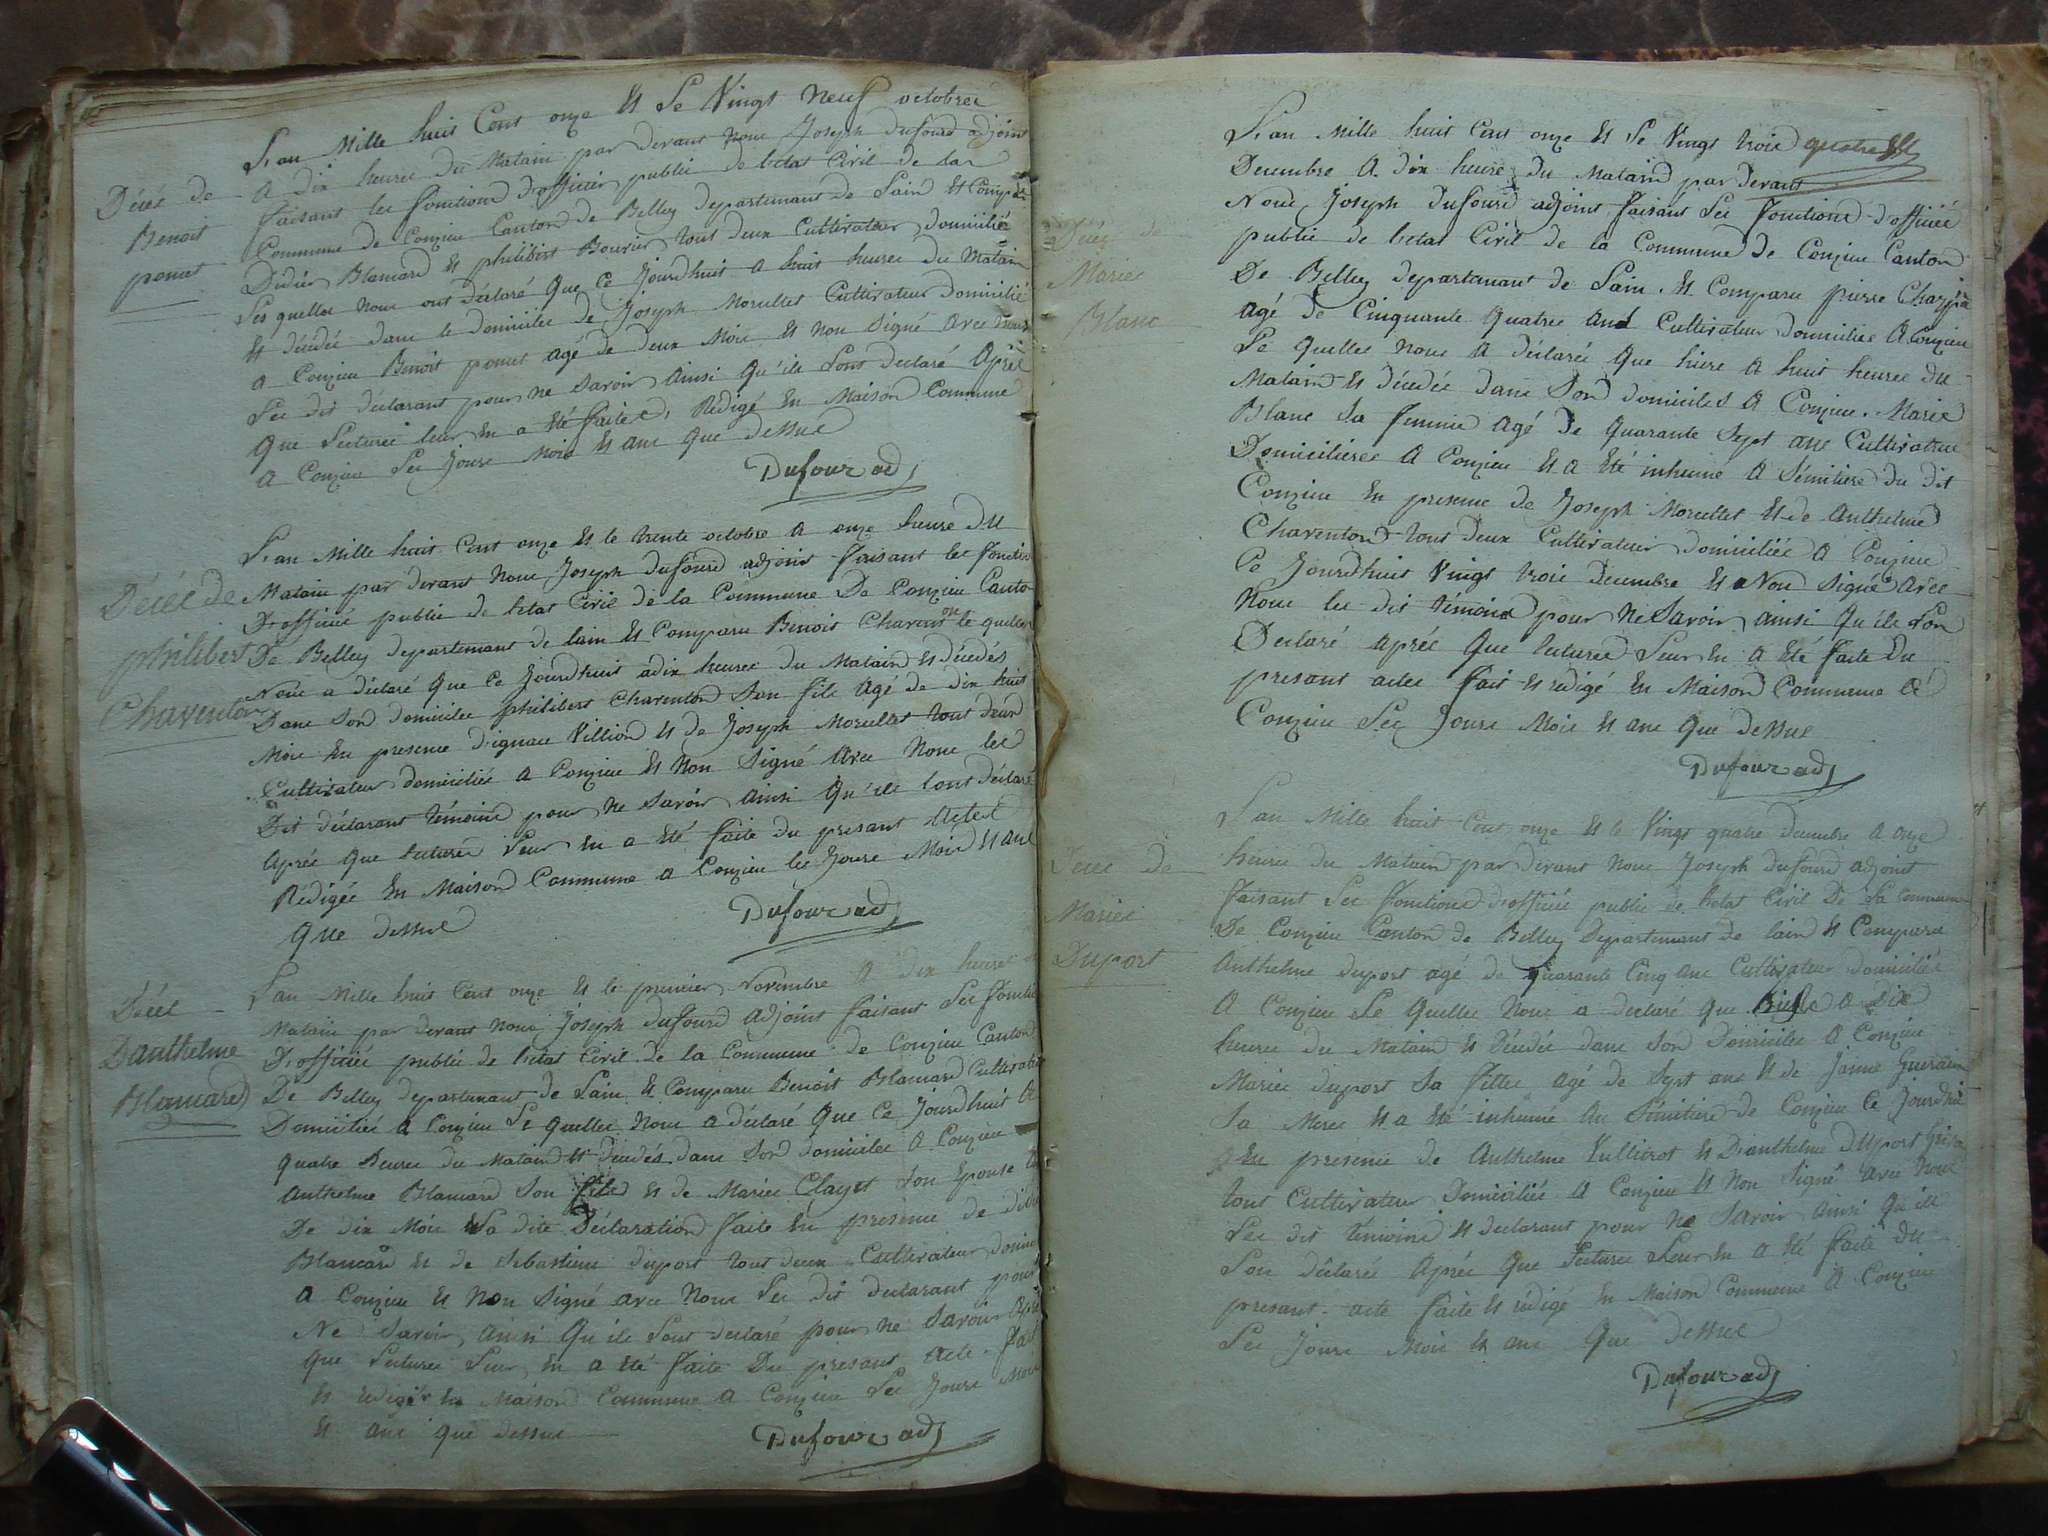 Décéz de
Benoit
pomet
L'an Mille huit Cent onze Et Le Vingt neuf octobre
A dix heures du Matain par devant nous Joseph dufourd adjoint
faisant les fonctions d'officier public de l'etat Civil de la
Commune de Conzieu Canton de Belley departement de Lain Et Comparu
Didier Blancard Et philibert Bourier tous deux Cultivateur domiciliés
Les quelles nous ont déclaré Que Ce Jourdhuit a huit heures du Matain
Et décédé dans le domicilee de Joseph Morellet Cultivateur domicilié
a Conzieu Benoit pomet agé de deux Mois Et non Signé avec nous
Les dit déclarant pour ne Savoir Ainsi Qu'ils Lont declaré Aprés
Que Lecturee leur En a Eté faitee, Rédigé En Maison Commune
A Conzieu Les Jours Mois Et ans Que dessus
Dufour adj
Décéz de
philibert
Charenton
L'an Mille huit Cent onze Et le trente octobre a onze heure du
Matain par devant Nous Joseph dufourd adjoint faisant les fonction
D'officiée public de l'etat Civil de la Commune De Conzieu Canton
De Belley departement de lain Et Comparu Benoit Charenton le quelee
Nous a déclaré Que Ce Jourdhuit a dix heures du Matain Et décédés
Dans Son domicilee philibert Charenton Son fils agé de dix huit
Mois En presence d'ignace Villiond Et de Joseph Morellet tout deux
Cultivateur domiciliés a Conzieu Et Non Signé Avec Nous les
Dit déclarant témoins pour Ne Savoir Ainsi Qu'ils lont déclaré
Aprés Que Lecturee Leur En a Eté faite du presant Actee
Rédigée En Maison Commune a Conzieu les Jours Mois Et ans
Que dessus
Dufour adj
Décéz
Danthelme
Blancard
L'an Mille huit Cent onze Et le premier Novembre A dix heures
Matain par devant Nous Joseph dufourd Adjoint faisant Les fonctio
D'officiée public de l'etat Civil de la Commune de Conzieu Canton
De Belley departement de Lain Et Comparu Benoit Blancard Cultivateu
Domicilié A Conzieu Le quellee Nous a déclaré Que Ce Jourdhuit A
Quatre heures du Matain Et décédés dans Son domicilee A Conzieu
Anthelme Blancard Son fils Et de Mariee Clayet Son Epouse
De dix Mois La dite Déclaration faite En presence de
Blancard Et de Sebastien duport tout deux Cultivateur
A Conzieu Et Non Signé avec Nous Les dit declarant pour
Ne Savoir Ainsi Qu'ils Lont declaré pour ne Savoir
Que Lecturee Leur En a Eté faite Du presant acte fait
Et rédigée En Maison Commune A Conzieu Les Jours Mois
Et ans Que dessus
Dufour adj
Décéz de
Mariee
Blanc
L'an Mille huit Cent onze Et Le Vingt trois
Decembre A dix heure du Mataind par Devant
Nous Joseph dufourd adjoint faisant Les fonctions d'officiée
public de l'etat Civil de la Commune de Conzieu Canton
De Belley departement de Lain Et Comparu pierre
agé de Cinquante Quatre Ans Cultivateur domiciliee A Conzieu
Le Quellee Nous A déclarée Que hiere A huit heures du
Mataind Et décédée dans Son domicilee A Conzieu Mariee
Blanc Sa femme Agé De Quarante Sept ans Cultivatrice
Domiciliéee A Conzieu Et a Eté inhumé A Sémitiere du dit
Conzieu En presence de Joseph Morellet Et de Anthelme
Charenton tout deux Cultivateur domiciliée A Conzieu
Ce Jourdhuit Vingt trois decembre Et Non Signé Avec
Nous les dit témoins pour Ne Savoir Ainsi Qu'ils Lon
Declaré Aprés Que Lecturee Leur En A Eté faite Du
presant actee fait Et rédigé En Maison Commune A
Conzieu Les Jours Mois Et ans Que dessus
Dufour adj
Décéz de
Mariee
Duport
L'an Mille huit Cent onze Et le Vingt quatre decembre A onze
heures du Matain par devant Nous Joseph dufourd adjoint
faisant Les fonctions d'officiée public de l'etat Civil De La Commune
De Conzieu Canton de Belley Departement de lain Et Comparu
Anthelme duport agé de Quarante Cinq ans Cultivateur domicilié
A Conzieu Le Quellee Nous a declaré Que A dix
heures du Matain Et décédée dans Son Domicilee A Conzieu
Mariee duport Sa fillee agé de Sept ans Et de Janne
Sa Mere Et a Eté inhumé Au Sémitiere de Conzieu Ce Jourdhui
En presence de Anthelme Vullierot Et D'anthelme Duport
tout Cultivateur Domiciliée A Conzieu Et Non Signé avec Nous
Les dit témoins Et declarant pour Ne Savoir Ainsi Qu'ils
Lon déclarée Aprée Que Lecturee Leur En A Eté faite Du
presant acte faite Et rédigé En Maison Commune A Conzieu
Les Jours Mois Et ans Que dessus
Dufour adj